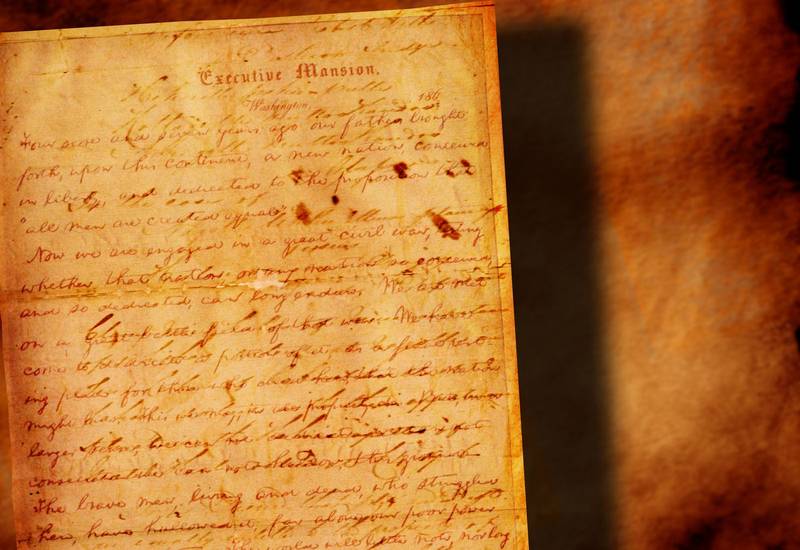 Executive Mansion,
Washington, 186
Four score and seven years ago our fathers brought
forth, upon this continent, a new nation, conceived
in liberty, and dedicated to the proposition that
"all men are created equal"
Now we are engaged in a great civil war, testing
whether that nation, or any nation so conceived,
and so dedicated, can long endure. We are met
on a great battle field of that war. We have
come to dedicate a portion of it, as a final rest-
ing place for those who died here, that the nation
might live. This we may, in all propriety do. But, in a
larger sense, we can not dedicate we can not
consecrate we can not hallow, this ground
The brave men, living and dead, who struggled
here, have hallowed it, far above our poor power
The world will little note, nor long